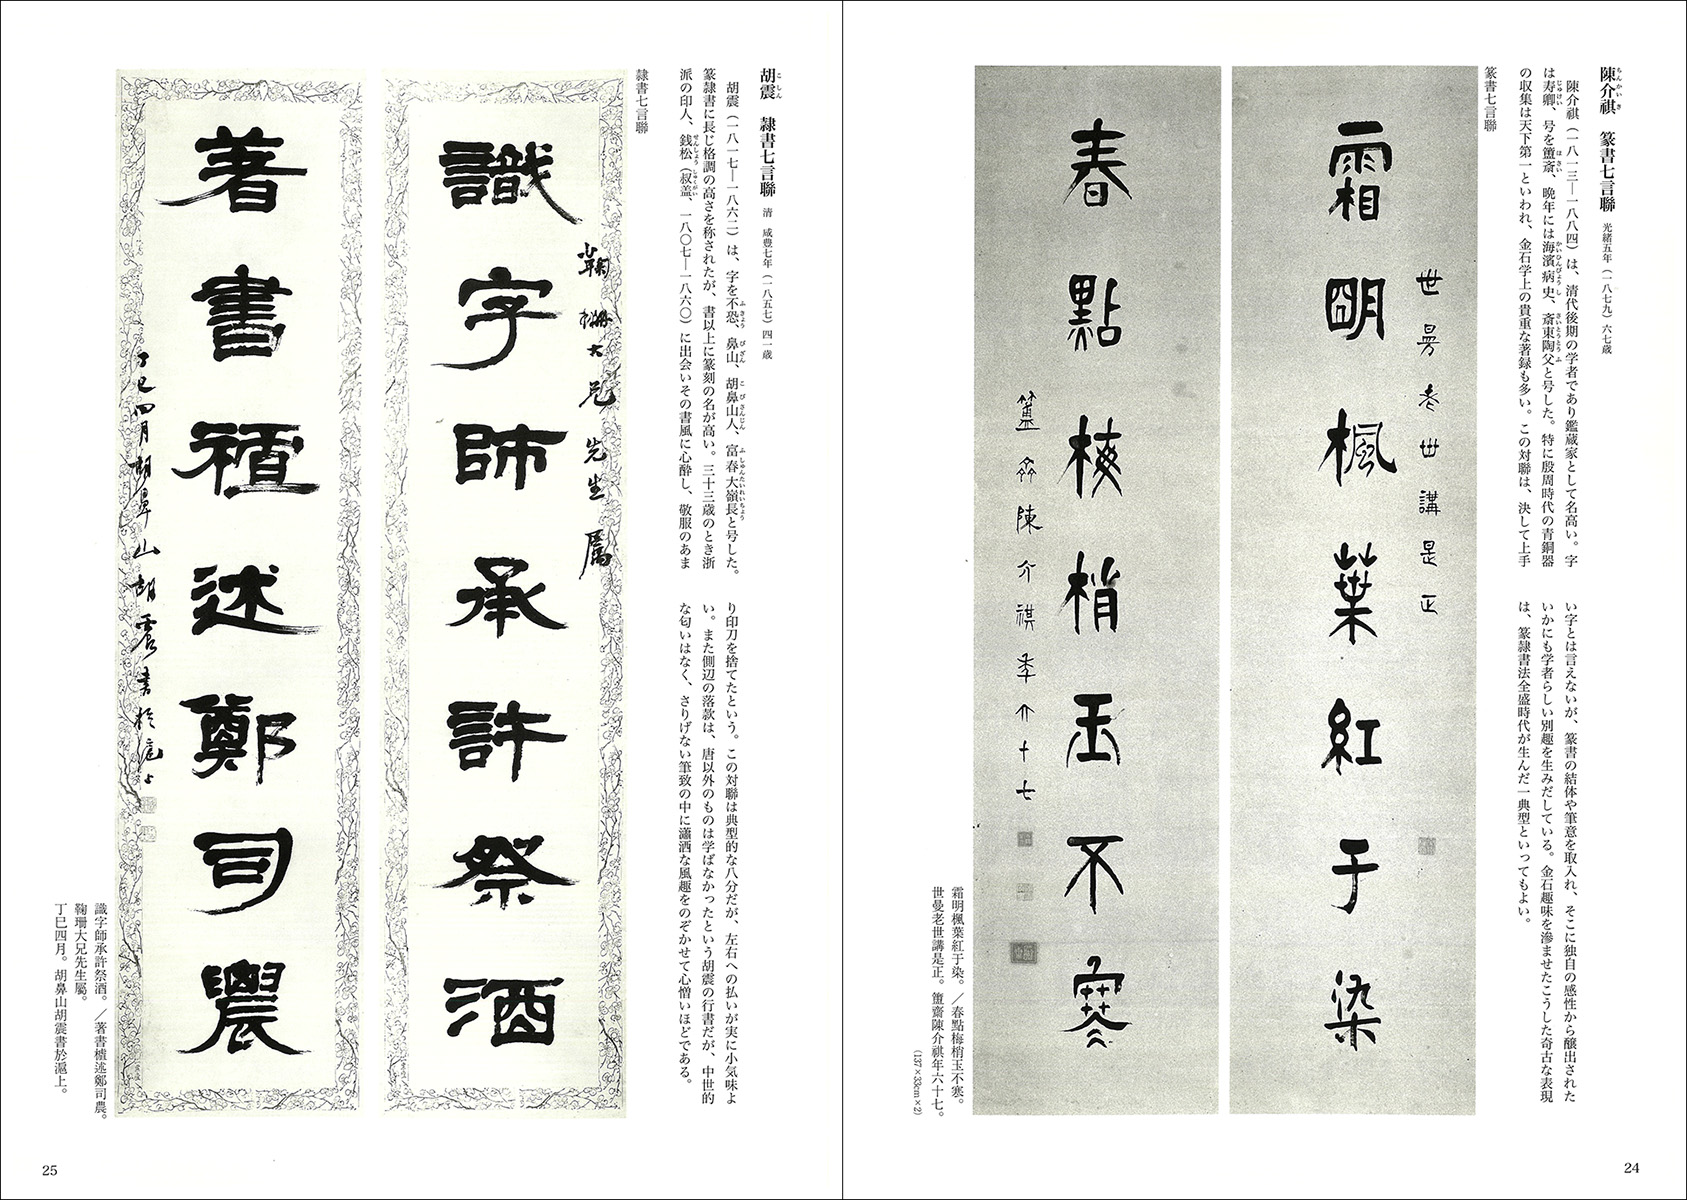 陳介祺　篆書七言聯　光緒五年（一八七九）六七歳
ちんかいき
陳介祺（一八一三―一八八四）は、清代後期の学者であり鑑蔵家として名高い。字
は寿卿、号を簠斎、晩年には海濱病史、斎東陶父と号した。特に殷周時代の青銅器
じゅけい
ほさい
かいひんびょうし
さいとうとうふ
の収集は天下第一といわれ、金石学上の貴重な著録も多い。この対聯は、決して上手
い字とは言えないが、篆書の結体や筆意を取入れ、そこに独自の感性から醸出された
いかにも学者らしい別趣を生みだしている。金石趣味を滲ませたこうした奇古な表現
は、篆隷書法全盛時代が生んだ一典型といってもよい。
篆書七言聯
世曼老世講是正
霜明楓葉紅于染
春點梅梢玉不寒
簠齋陳介祺年六十七
霜明楓葉紅于染。／春點梅梢玉不寒。
世曼老世講是正。簠齋陳介祺年六十七。
（137×33cm×2）
24
胡震　隷書七言聯　清　咸豊七年（一八五七）四一歳
こしん
胡震（一八一七―一八六二）は、字を不恐、鼻山、胡鼻山人、富春大嶺長と号した。
ふきょう
びざん
こびさんじん
ふしゅんたいれいちょう
篆隷書に長じ格調の高さを称されたが、書以上に篆刻の名が高い。三十三歳のとき浙
派の印人、銭松（叔蓋、一八〇七―一八六〇）に出会いその書風に心酔し、敬服のあま
せんしょう
しゅくがい
り印刀を捨てたという。この対聯は典型的な八分だが、左右への払いが実に小気味よ
い。また側辺の落款は、唐以外のものは学ばなかったという胡震の行書だが、中世的
な匂いはなく、さりげない筆致の中に瀟洒な風趣をのぞかせて心憎いほどである。
隷書七言聯
鞠珊大兄先生屬
識字師承許祭酒
著書禮述鄭司農
丁巳四月胡鼻山胡震書於滬上
識字師承許祭酒。／著書述鄭司農。
鞠珊大兄先生屬。
丁巳四月。胡鼻山胡震書於滬上。
25